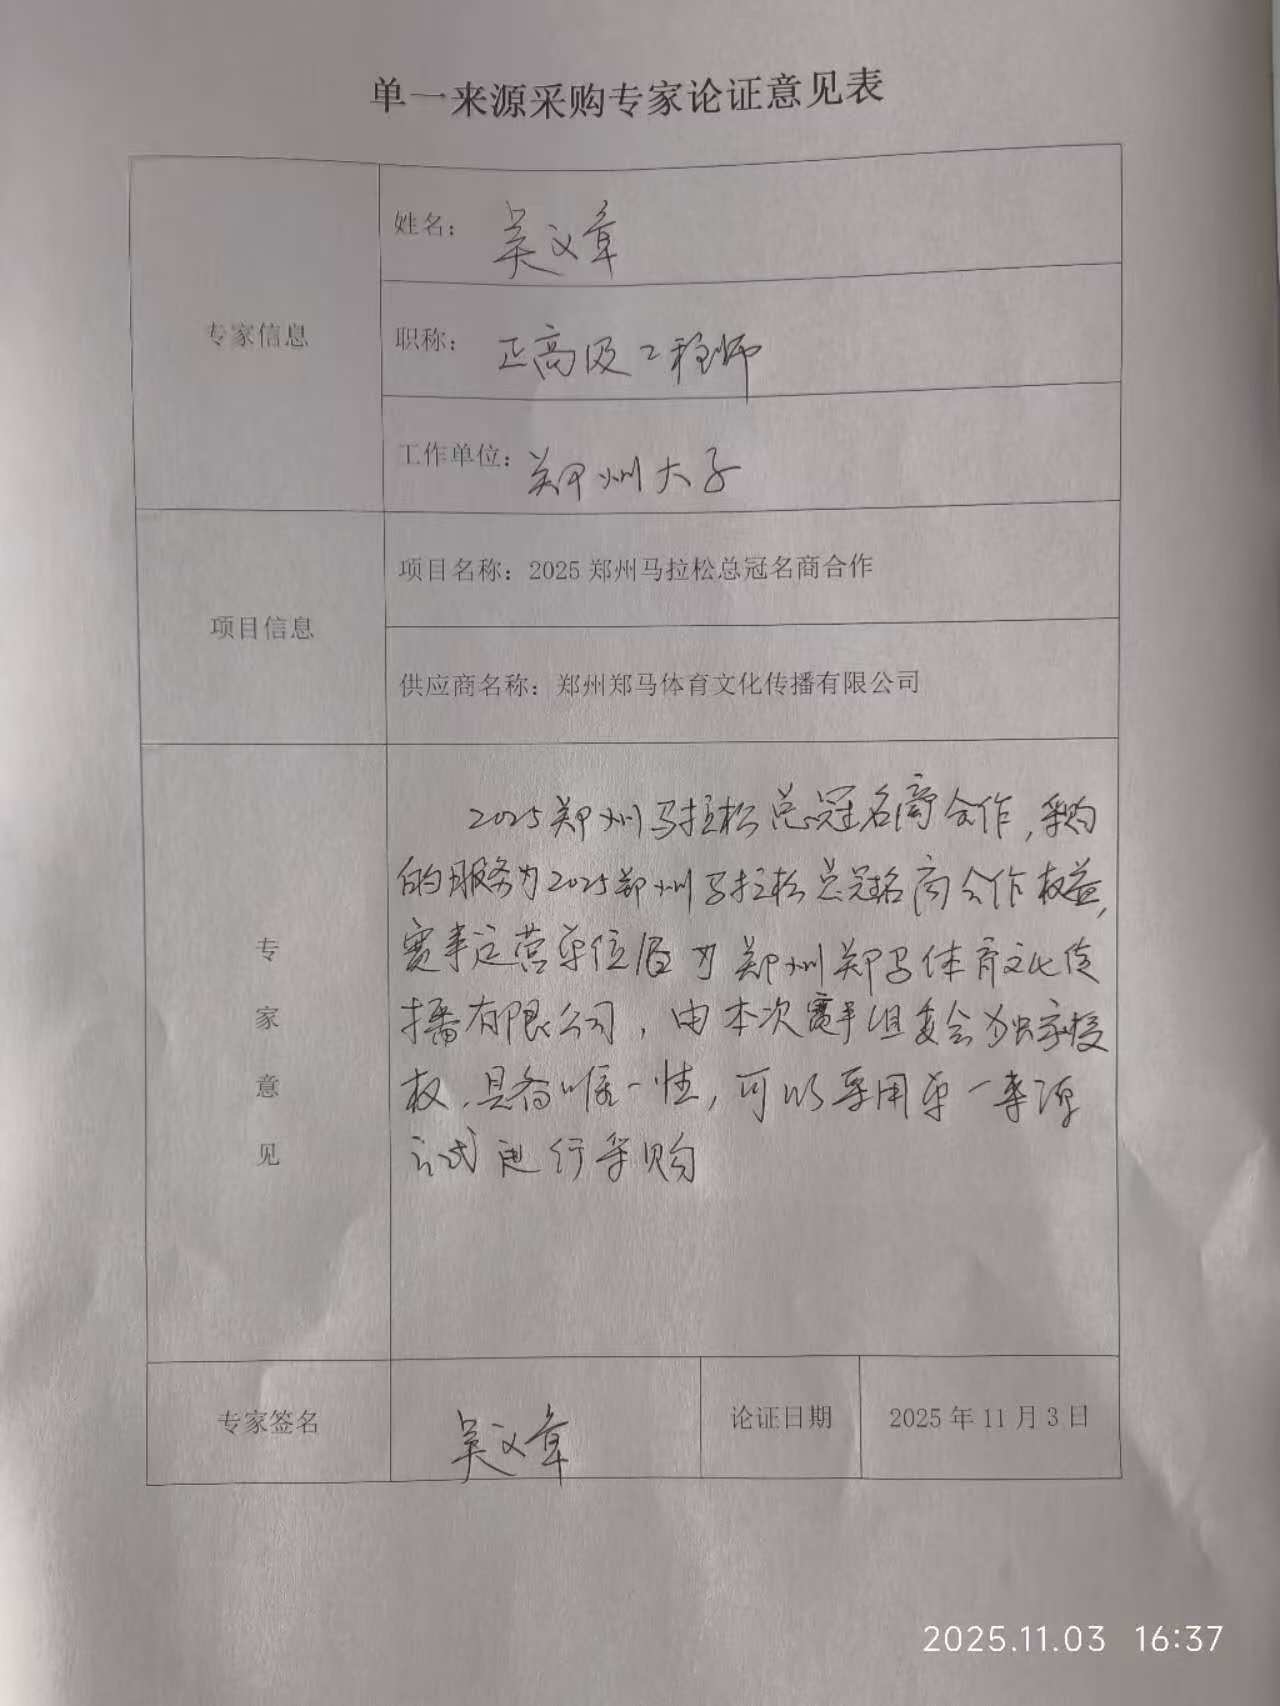 单一来源采购专家论证意见表
专家信息
姓名：吴文章
职称：正高级工程师
工作单位：郑州大学
项目信息
项目名称：2025郑州马拉松总冠名商合作
供应商名称：郑州郑马体育文化传播有限公司
专家意见
2025郑州马拉松总冠名商合作，采购
的服务为2025郑州马拉松总冠名商合作权益，
赛事运营单位为郑州郑马体育文化传
播有限公司，由本次赛事组委会为独家授
权，具备唯一性，可以采用单一来源
方式进行采购
专家签名 吴文章 论证日期 2025年11月3日
2025.11.03 16:37